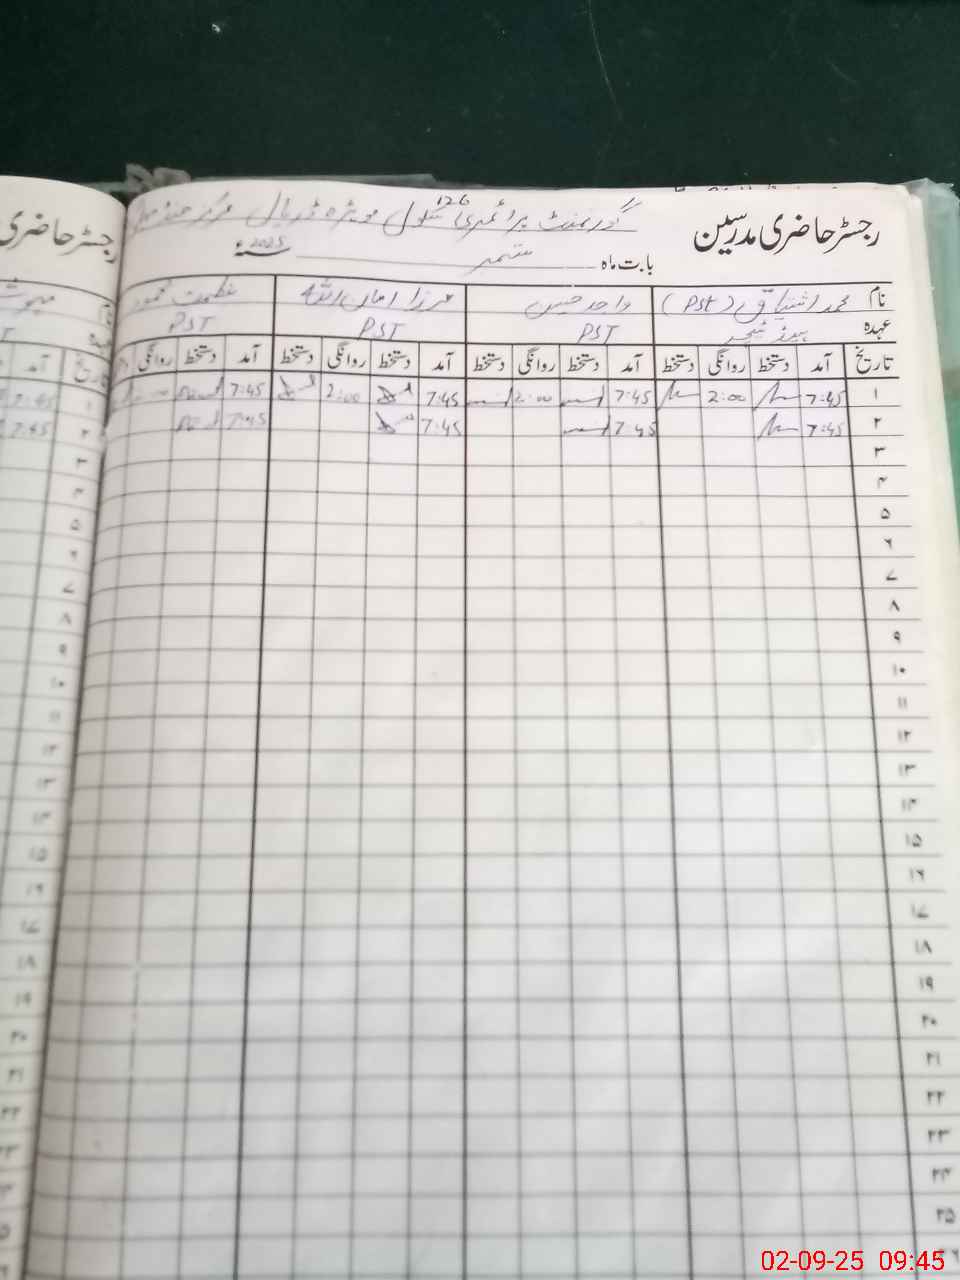 رجسٹر حاضری مدرسین
گورنمنٹ پرائمری سکول 126
بابت ماہ ستمبر 2025ء
نام محمد اشتیاق (PST) واجد حسین مرزا امان اللہ عظمت محمود
عہدہ ہیڈ ٹیچر PST PST PST
تاریخ آمد دستخط روانگی دستخط آمد دستخط روانگی دستخط آمد دستخط روانگی دستخط آمد دستخط روانگی
۱ 7:45 2:00 7:45 2:00 7:45 2:00 7:45
۲ 7:45 7:45 7:45 7:45
۳
۴
۵
۶
۷
۸
۹
۱۰
۱۱
۱۲
۱۳
۱۴
۱۵
۱۶
۱۷
۱۸
۱۹
۲۰
۲۱
۲۲
۲۳
۲۴
۲۵
رجسٹر حاضری
نام
عہدہ
تاریخ آمد
۱ 7:45
۲ 7:45
۳
۴
۵
۶
۷
۸
۹
۱۰
۱۱
۱۲
۱۳
۱۴
۱۵
۱۶
۱۷
۱۸
۱۹
۲۰
۲۱
۲۲
۲۳
02-09-25 09:45